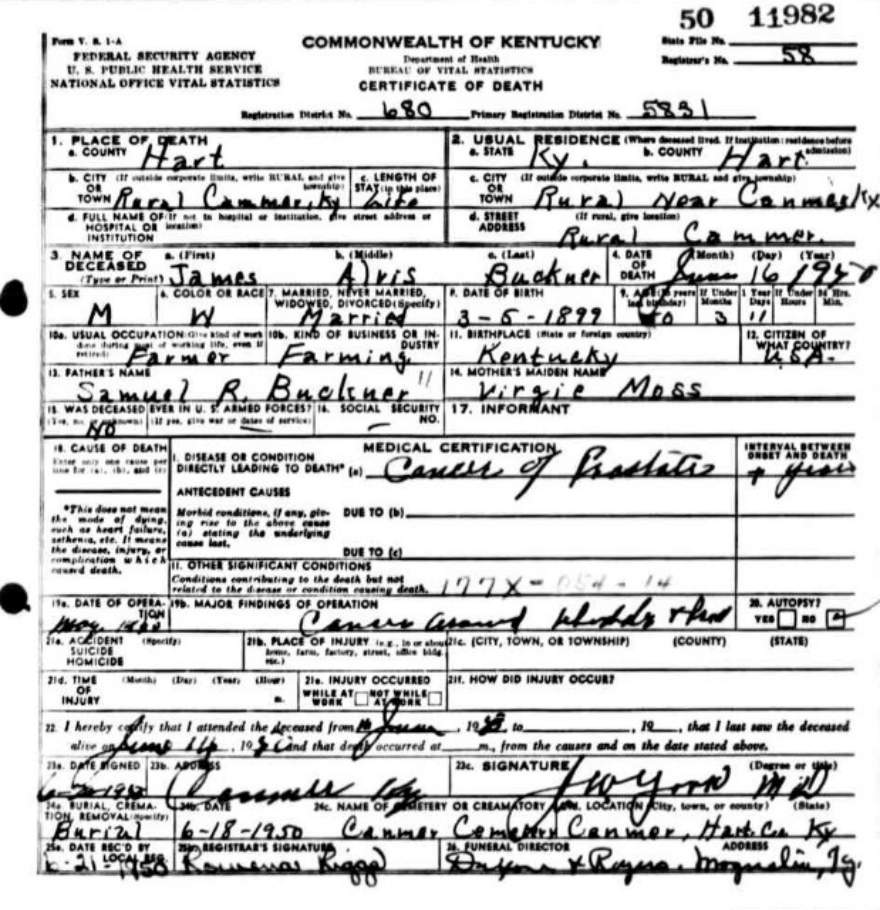 50 11982
Form V. S. 1-A
FEDERAL SECURITY AGENCY
U. S. PUBLIC HEALTH SERVICE
NATIONAL OFFICE VITAL STATISTICS
COMMONWEALTH OF KENTUCKY
Department of Health
BUREAU OF VITAL STATISTICS
CERTIFICATE OF DEATH
State File No.
Registrar's No. 58
Registration District No. 680 Primary Registration District No. 5831
1. PLACE OF DEATH
a. COUNTY Hart
2. USUAL RESIDENCE (Where deceased lived. If institution: residence before admission)
a. STATE Ky. b. COUNTY Hart
b. CITY OR TOWN (If outside corporate limits, write RURAL and give township) Rural Canmer, Ky
c. LENGTH OF STAY (in this place) Life
c. CITY OR TOWN (If outside corporate limits, write RURAL and give township) Rural Near Canmer Ky
d. FULL NAME OF HOSPITAL OR INSTITUTION (If not in hospital or institution, give street address or location)
d. STREET ADDRESS (If rural, give location) Rural Canmer.
3. NAME OF DECEASED (Type or Print)
a. (First) James b. (Middle) Alvis c. (Last) Buckner
4. DATE OF DEATH (Month) (Day) (Year) June 16 1950
5. SEX M
6. COLOR OR RACE W
7. MARRIED, NEVER MARRIED, WIDOWED, DIVORCED (Specify) Married
8. DATE OF BIRTH 3-5-1899
9. AGE (In years last birthday) If Under 1 Year Months 3 Days 11 If Under 24 Hrs. Hours Min.
10a. USUAL OCCUPATION (Give kind of work done during most of working life, even if retired) Farmer
10b. KIND OF BUSINESS OR INDUSTRY Farming
11. BIRTHPLACE (State or foreign country) Kentucky
12. CITIZEN OF WHAT COUNTRY? U.S.A.
13. FATHER'S NAME Samuel R. Buckner 11
14. MOTHER'S MAIDEN NAME Virgie Moss
15. WAS DECEASED EVER IN U. S. ARMED FORCES? (Yes, no, or unknown) (If yes, give war or dates of service) No
16. SOCIAL SECURITY NO.
17. INFORMANT
18. CAUSE OF DEATH
Enter only one cause per line for (a), (b), and (c)
*This does not mean the mode of dying, such as heart failure, asthenia, etc. It means the disease, injury, or complication which caused death.
MEDICAL CERTIFICATION
I. DISEASE OR CONDITION DIRECTLY LEADING TO DEATH* (a) Cancer of Prostate
INTERVAL BETWEEN ONSET AND DEATH
ANTECEDENT CAUSES
Morbid conditions, if any, giving rise to the above cause (a) stating the underlying cause last.
DUE TO (b)
DUE TO (c)
II. OTHER SIGNIFICANT CONDITIONS
Conditions contributing to the death but not related to the disease or condition causing death. 177X-054-14
19a. DATE OF OPERATION
19b. MAJOR FINDINGS OF OPERATION Cancer around
20. AUTOPSY? YES NO
21a. ACCIDENT SUICIDE HOMICIDE (Specify)
21b. PLACE OF INJURY (e.g., in or about home, farm, factory, street, office bldg., etc.)
21c. (CITY, TOWN, OR TOWNSHIP) (COUNTY) (STATE)
21d. TIME OF INJURY (Month) (Day) (Year) (Hour) m.
21e. INJURY OCCURRED WHILE AT WORK NOT WHILE AT WORK
21f. HOW DID INJURY OCCUR?
22. I hereby certify that I attended the deceased from June, 19 to , 19 , that I last saw the deceased
alive on June 14, 1950 and that death occurred at m., from the causes and on the date stated above.
23a. DATE SIGNED
23b. ADDRESS Canmer Ky
23c. SIGNATURE (Degree or title) J W York MD
24a. BURIAL, CREMATION, REMOVAL (Specify) Burial
24b. DATE 6-18-1950
24c. NAME OF CEMETERY OR CREAMATORY Canmer Cemetery
24d. LOCATION (City, town, or county) (State) Canmer, Hart Co Ky
25a. DATE REC'D BY LOCAL REG. 6-21-1950
25b. REGISTRAR'S SIGNATURE Rowena Riggs
26. FUNERAL DIRECTOR ADDRESS & Rogers. Magnolia, Ky.